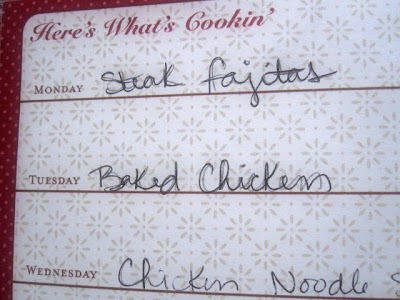 Here's What's Cookin'
Monday Steak Fajitas
Tuesday Baked Chicken
Wednesday Chicken Noodle S